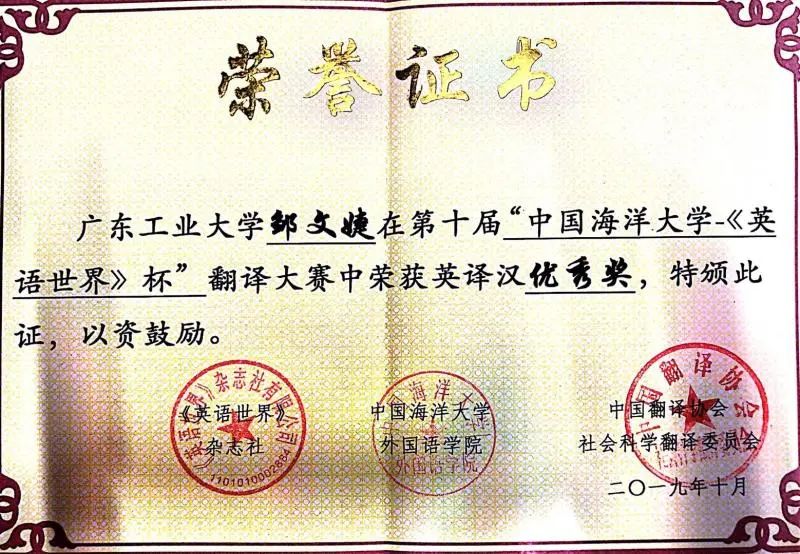 荣誉证书
广东工业大学邹文婕在第十届“中国海洋大学-《英
语世界》杯”翻译大赛中荣获英译汉优秀奖，特颁此
证，以资鼓励。
《英语世界》
杂志社
《英语世界》杂志社有限公司
1101010002664
中国海洋大学
外国语学院
中国海洋大学
外国语学院
中国翻译协会
社会科学翻译委员会
中国翻译协会
二〇一九年十月